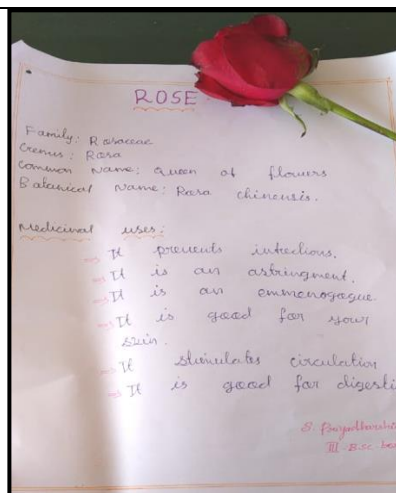 ROSE
Family: Rosaceae
Genus: Rosa
Common Name: Queen of flowers
Botanical Name: Rosa chinensis.
Medicinal uses:
→ It prevents infections.
→ It is an astringment.
→ It is an emmenogogue
→ It is good for your
skin.
→ It stimulates circulation
→ It is good for digesti
S.
III-B.Sc